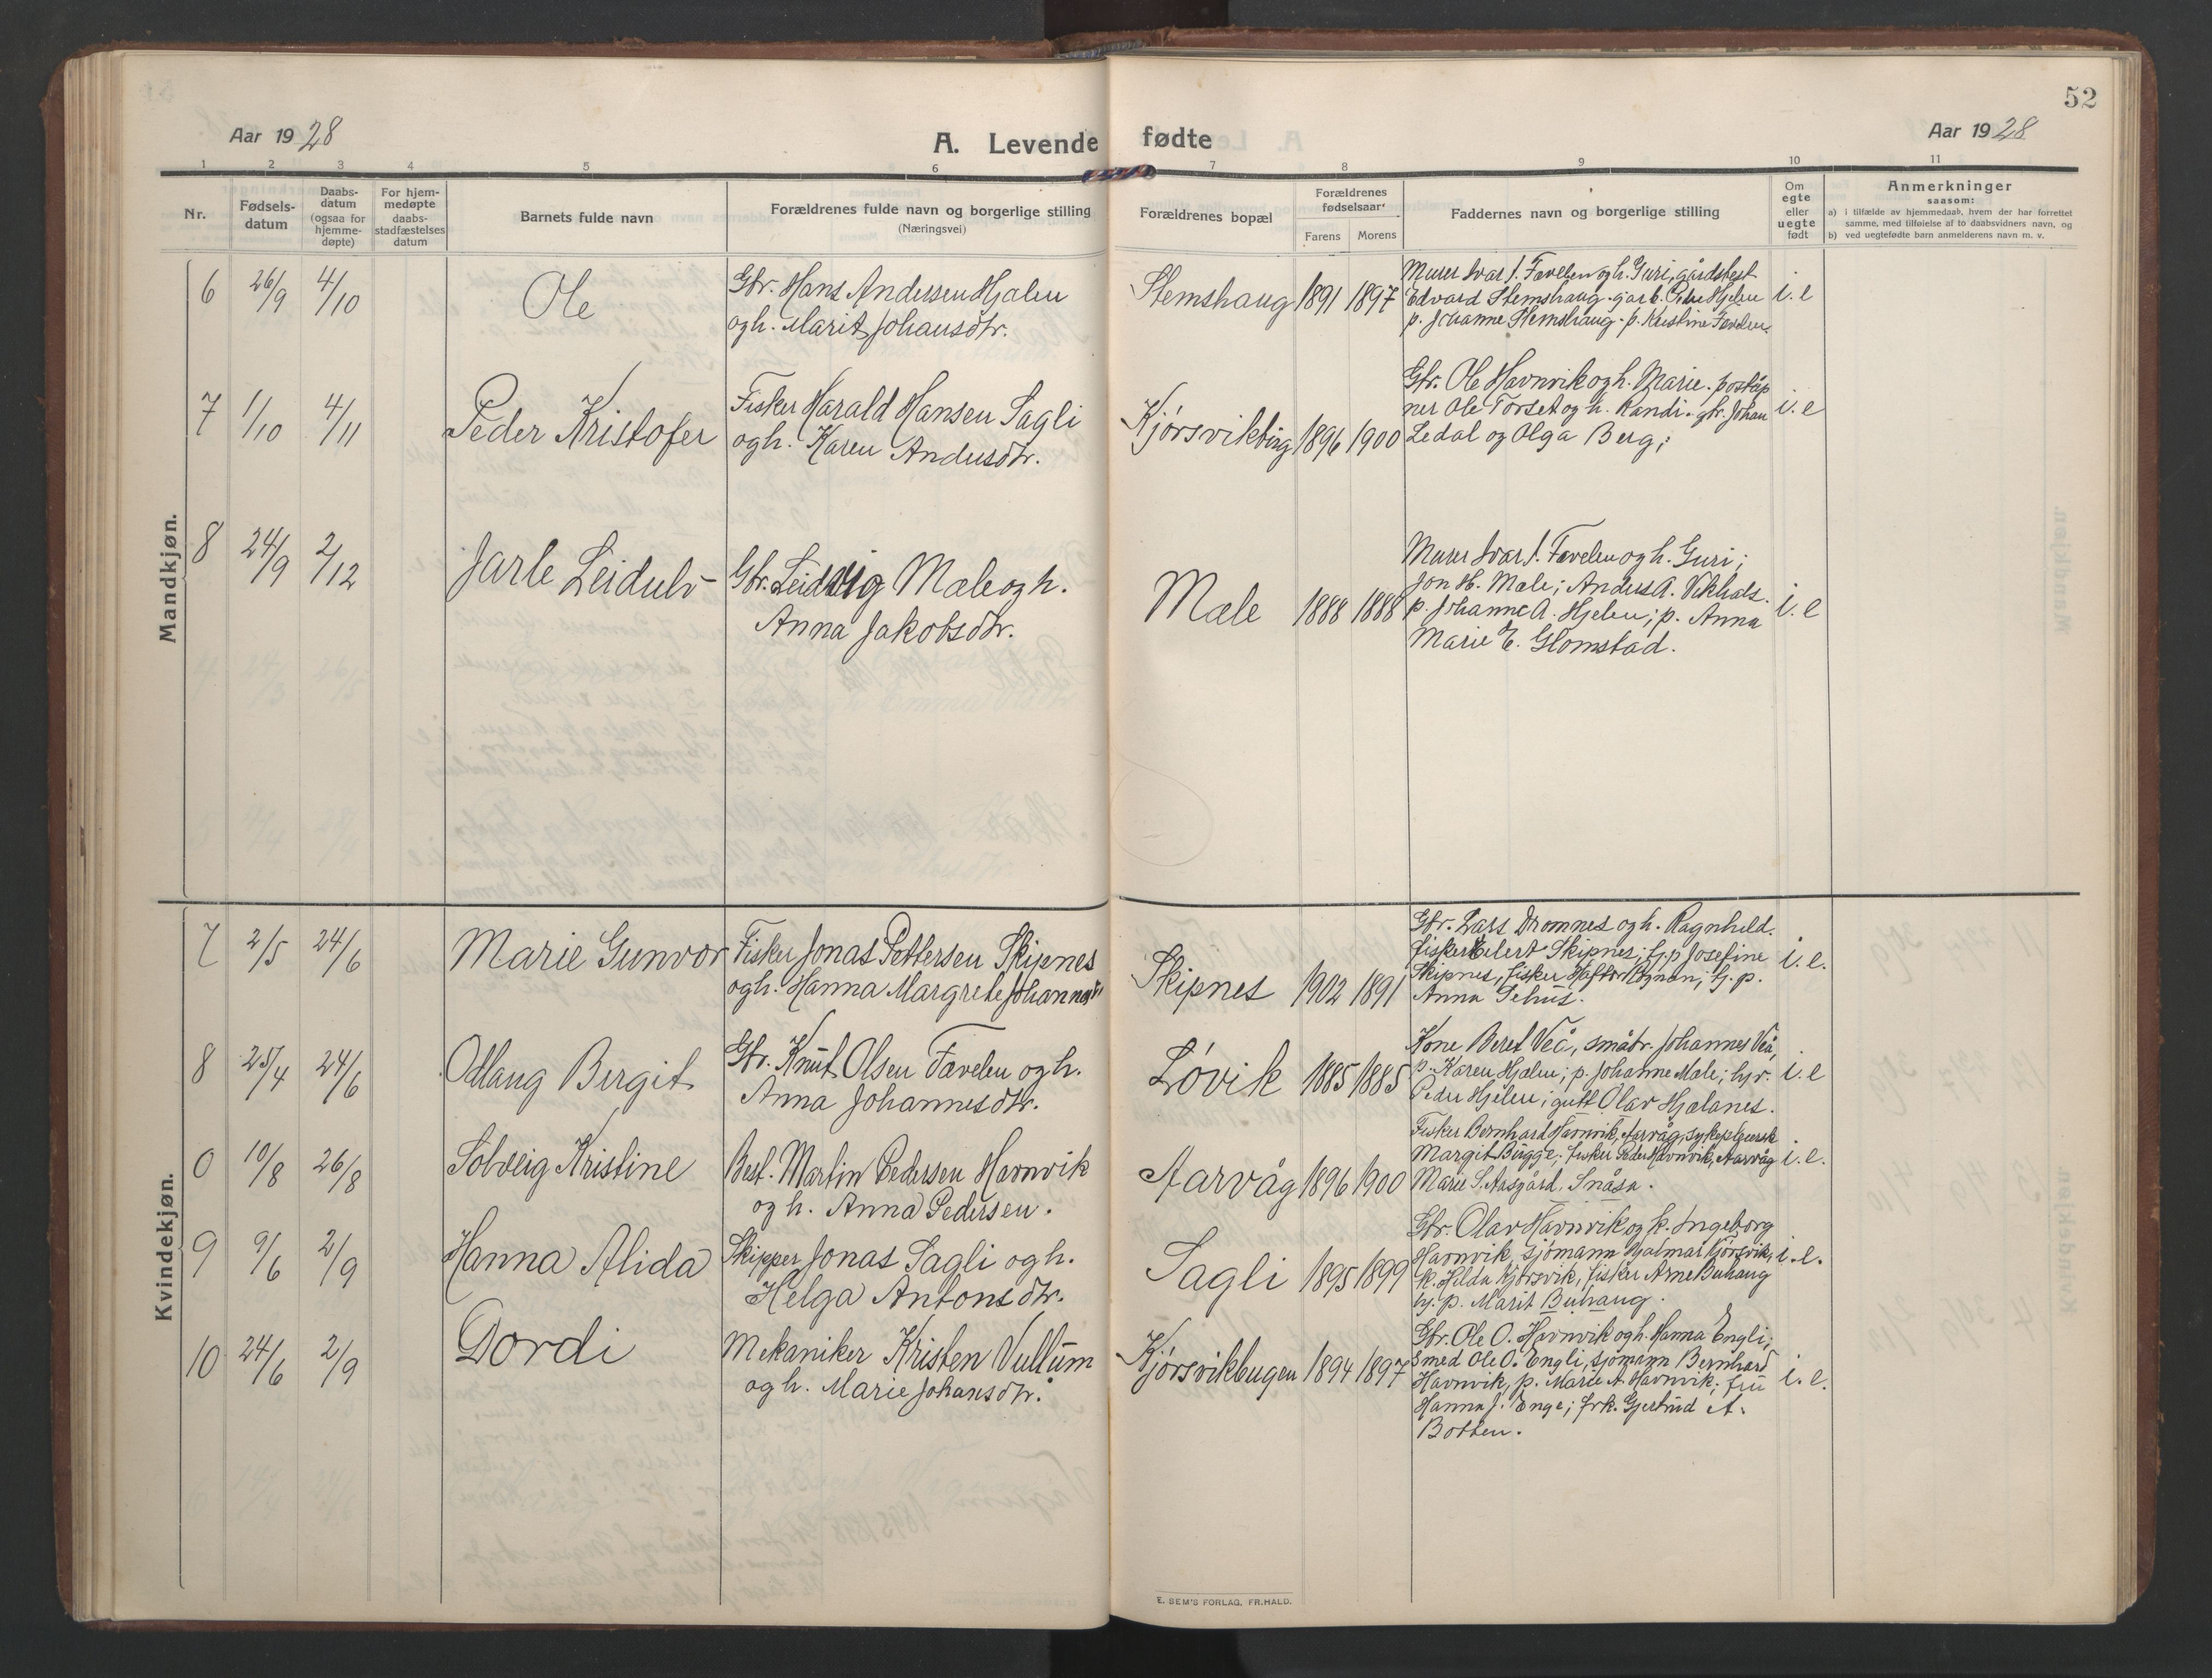 52
Aar 1928
A. Levende fødte
Aar 1928
1 2 3 4 5 6 7 8 9 10 11
Nr.
Fødsels-
datum
Daabs-
datum
(ogsaa for
hjemme-
døpte)
For hjem-
medøpte
daabs-
stadfæstelses
datum
Barnets fulde navn
Forældrenes fulde navn og borgerlige stilling
(Næringsvei)
Forældrenes bopæl
Forældrenes
fødselsaar
Farens Morens
Faddernes navn og borgerlige stilling
Om
egte
eller
uegte
født
Anmerkninger
saasom:
a) i tilfælde av hjemmedaab, hvem der har forrettet
samme, med tilføielse af to daabsvidners navn, og
b) ved uegtefødte barn anmelderens navn m. v.
Mandkjøn.
6 26/9 4/10 Ole
Gbr. Hans Andersen Hjalen
og h. Marit Johansdtr.
Stemshaug 1891 1897
Murer Ivar J. Fævelen og h. Guri, gårdsbest.
Edvard Stemshaug. garb. Peder Hjelen
p. Johanne Stemshaug. p. Kristine Fævelen.
i. e
7 1/10 4/11 Peder Kristofer
Fisker Harald Hansen Sagli
og h. Karen Andersdtr.
Kjørsvikbug 1896 1900
Gbr. Ole Havnvik og h. Marie. poståp
ner Ole Torset og h. Randi. gbr. Johan
Ledal og Olga Berg;
i. e
8 24/9 2/12 Jarle Leidulv
Gbr. Leidvig Mæle og h.
Anna Jakobsdtr.
Mæle 1888 1888
Murer Ivar J. Fævelen og h. Guri;
Jon H. Mæle; Anders A. Vikhals.
p. Johanne A. Hjelen; p. Anna
Marie E. Glomstad.
i. e
Kvindekjøn.
7 2/5 24/6 Marie Gunvor
Fisker Jonas Pettersen Skipnes
og h. Hanna Margrete Johannesdtr
Skipnes 1902 1891
Gbr. Lars Dromnes og h. Ragnhild.
fisker Eilert Skipnes; hj. p Josefine
Skipnes, fisker Haftor Rognan; hj. p.
Anna
i. e.
8 25/4 24/6 Odlaug Bergit
Gbr. Knut Olsen Fævelen og h.
Anna Johannesdtr.
Løvik 1885 1885
Kone Beret Veå, småbr. Johannes Veå,
p. Karen Hjalen; p. Johanne Mæle; hjv.
Peder Hjelen; gutt Olav Hjælanes.
i. e
0 10/8 26/8 Solveig Kristine
Best. Martin Pedersen Havnvik
og h. Anna Pedersen.
Aarvåg 1896 1900
Fisker Bernhard Havnvik, Aarvåg, sykepleiersk
Margit Bugge; fisker Peder Havnvik, Aarvåg
Marie S. Aasgård, Snåsa.
i. e.
9 9/6 2/9 Hanna Alida
Skipper Jonas Sagli og h.
Helga Antonsdtr.
Sagli 1895 1899
Gbr. Olav Havnvik og k. Ingeborg
Havnvik, sjömann Hjalmar Kjörsvik,
k. Hilda Kjørsvik, fisker Arne Buhaug
hj. p. Marit Buhaug.
i. e.
10 24/6 2/9 Dordi
Mekaniker Kristen Vullum
og h. Marie Johansdtr.
Kjørsvikbugen 1894 1897
Gbr. Ole O. Havnvik og h. Hanna Engli;
smed Ole O. Engli, sjömann Bernhard
Havnvik, p. Marie A. Havnvik; fru
Hanna J. Enge; frk. Gjertrud A.
Botten.
i. e.
E. SEM'S FORLAG, FR.HALD.